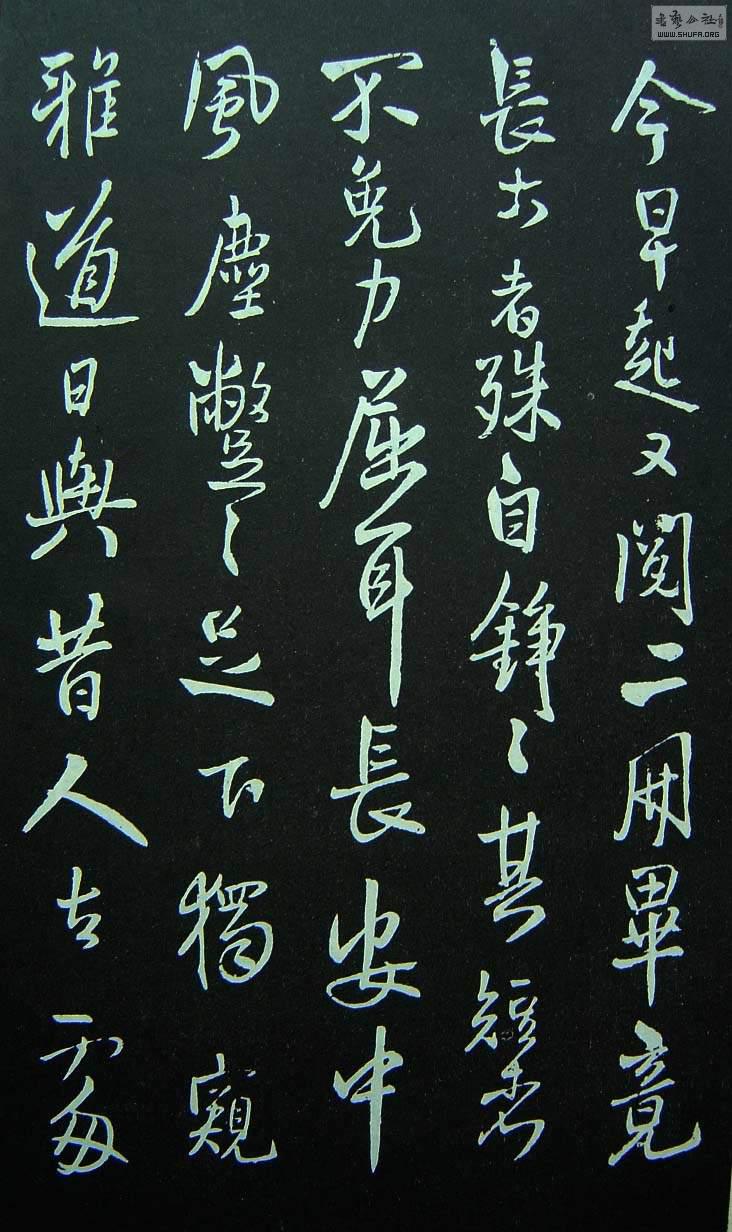 今早起又閱二冊畢竟
長古者殊自錚〻其短者
不免力屈耳長安中
風塵蹩〻足下獨窺
雅道日與昔人古
書藝公社
WWW.SHUFA.ORG